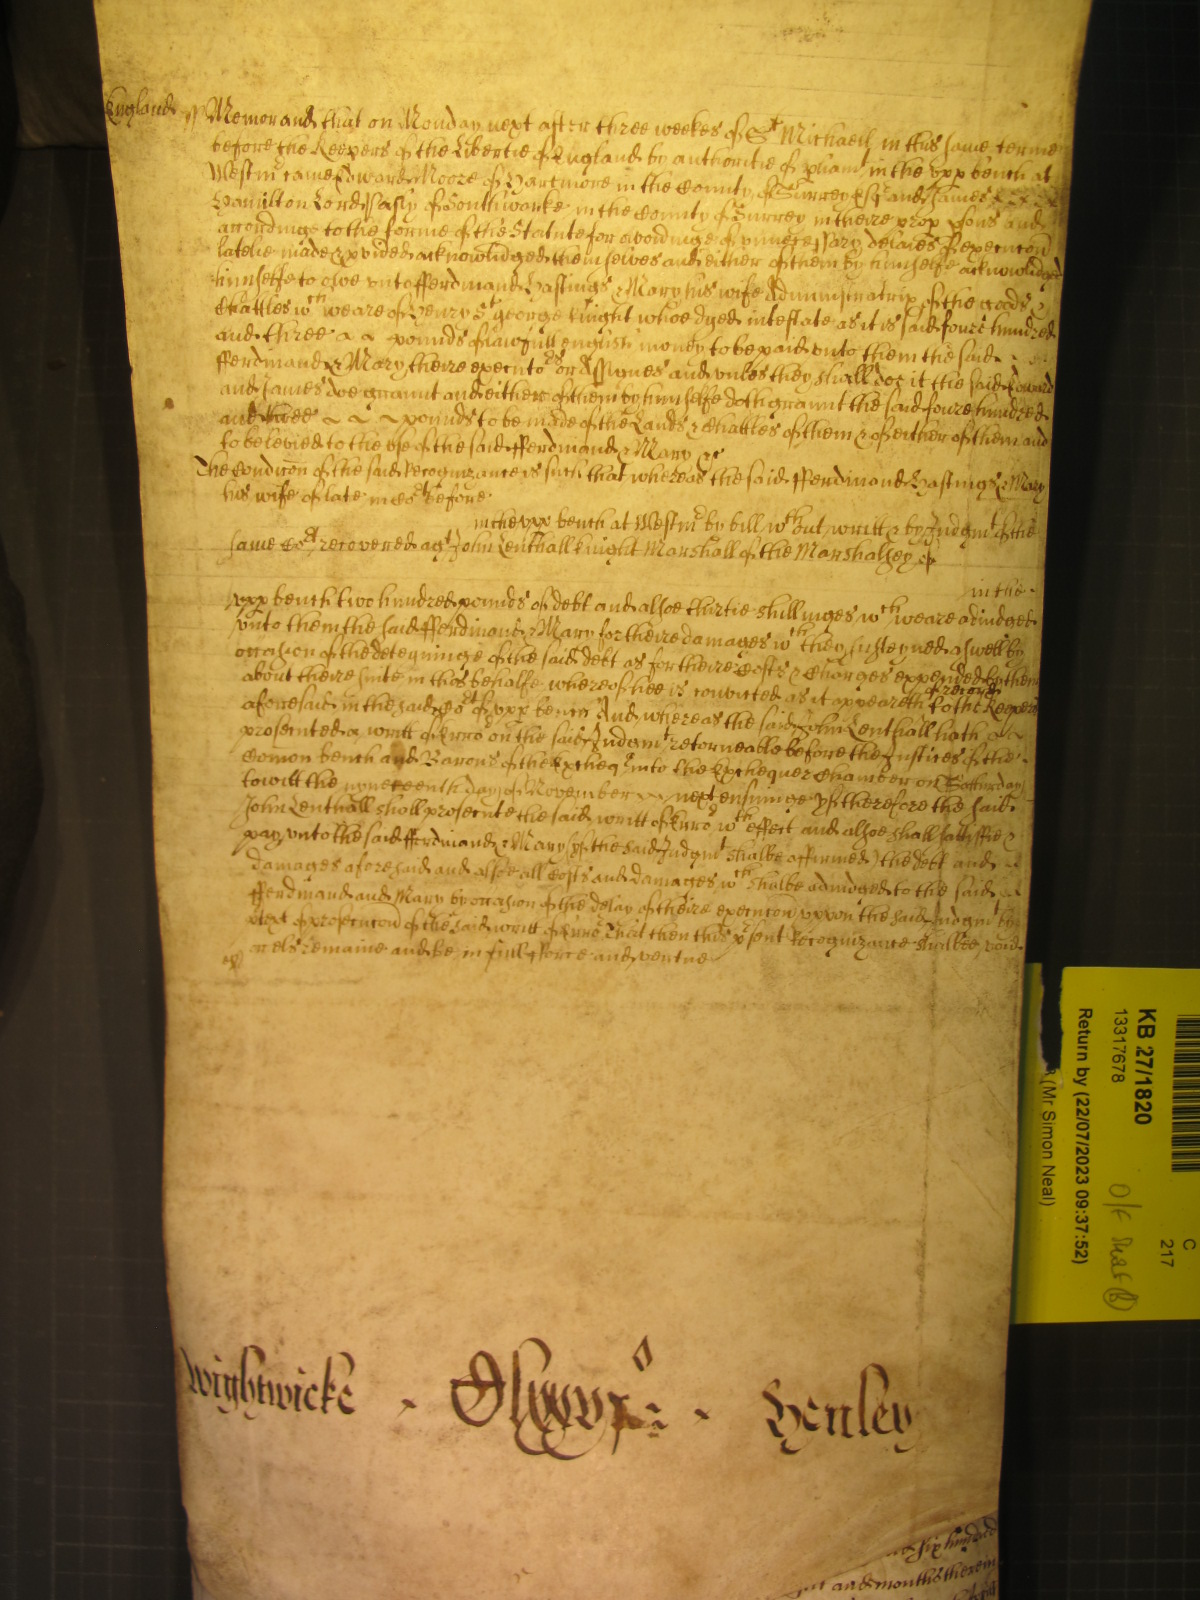 England ss Memorand that on Monday next after three weekes of St Michaell in this same terme
before the Keepers of the Libertie of England by authoritie of pliamt in the upp bench at
Westm came Edward Moore of Hartmore in the County of Surrey Esqr and James
Hamilton Lord of Southwarke in the County of Surrey in theire prop psons and
accordinge to the forme of the Statute for avoidinge of unnecessary delaies of execucon
latelie made & pvided acknowlidged themselves and either of them by himselfe acknowlidged
himselfe to owe unto fferdinand Hastings & Mary his wife Administratrix of the goods &
Chattles wch weare of Henry St george knight whoe dyed intestate as it is said foure hundred
and three pounds of lawfull english money to be paid unto them the said
fferdinand & Mary theire executors or Assignes and unles they shall doe it the said Edward
and James doe graunt and either of them by himselfe doth graunt the said foure hundred
and three pounds to be made of the Lands & Chattles of them & of either of them and
to be levied to the use of the said fferdinand & Mary &c
The Condicon of the said Recognizance is such that whereas the said fferdinand Hastings & Mary
his wife of late in Cort before
in the upp bench at Westm by bill wthout writt & by Judgmt of the
same Cort recovered agt John Lenthall knight Marshall of the Marshalsey
in the
upp bench two hundred pounds of debt and alsoe thirtie shillinges wch weare adiudged
unto them the said fferdinand & Mary for theire damages wch they susteyned aswell by
occasion of the deteyninge of the said debt as for theire Costs & Charges expended by them
about theire suite in this behalfe whereof hee is convicted as it appeareth of record
aforesaid in the said Cort of upp bench And whereas the said John Lenthall hath
prosecuted a writt of Erro on the said Judgmt retorneable before the Justices of the
Comon bench and Barons of the Excheqr into the Exchequer Chamber on Satturday
towitt the nyneteenth day of November next ensuinge Yf therefore the said
John Lenthall shall prosecute the said writt of Erro wth effect and alsoe shall sattisfie &
pay unto the said fferdinand & Mary (yf the said Judgmt shalbe affirmed) the debt and
damages aforesaid and alsoe all Costs and damages wch shalbe adiudged to the said
fferdinand and Mary by occasion of the delay of theire execucon uppon the said Judgmt by
ptext of prosecucon of the said writt of Erro That then this psent Recognizance shalbee void
or els remaine and be in full force and vertue
Wightwicke Henley
six hundred
and months therein
KB 27/1820
13317678
Return by (22/07/2023 09:37:52)
(Mr Simon Neal)
C
217